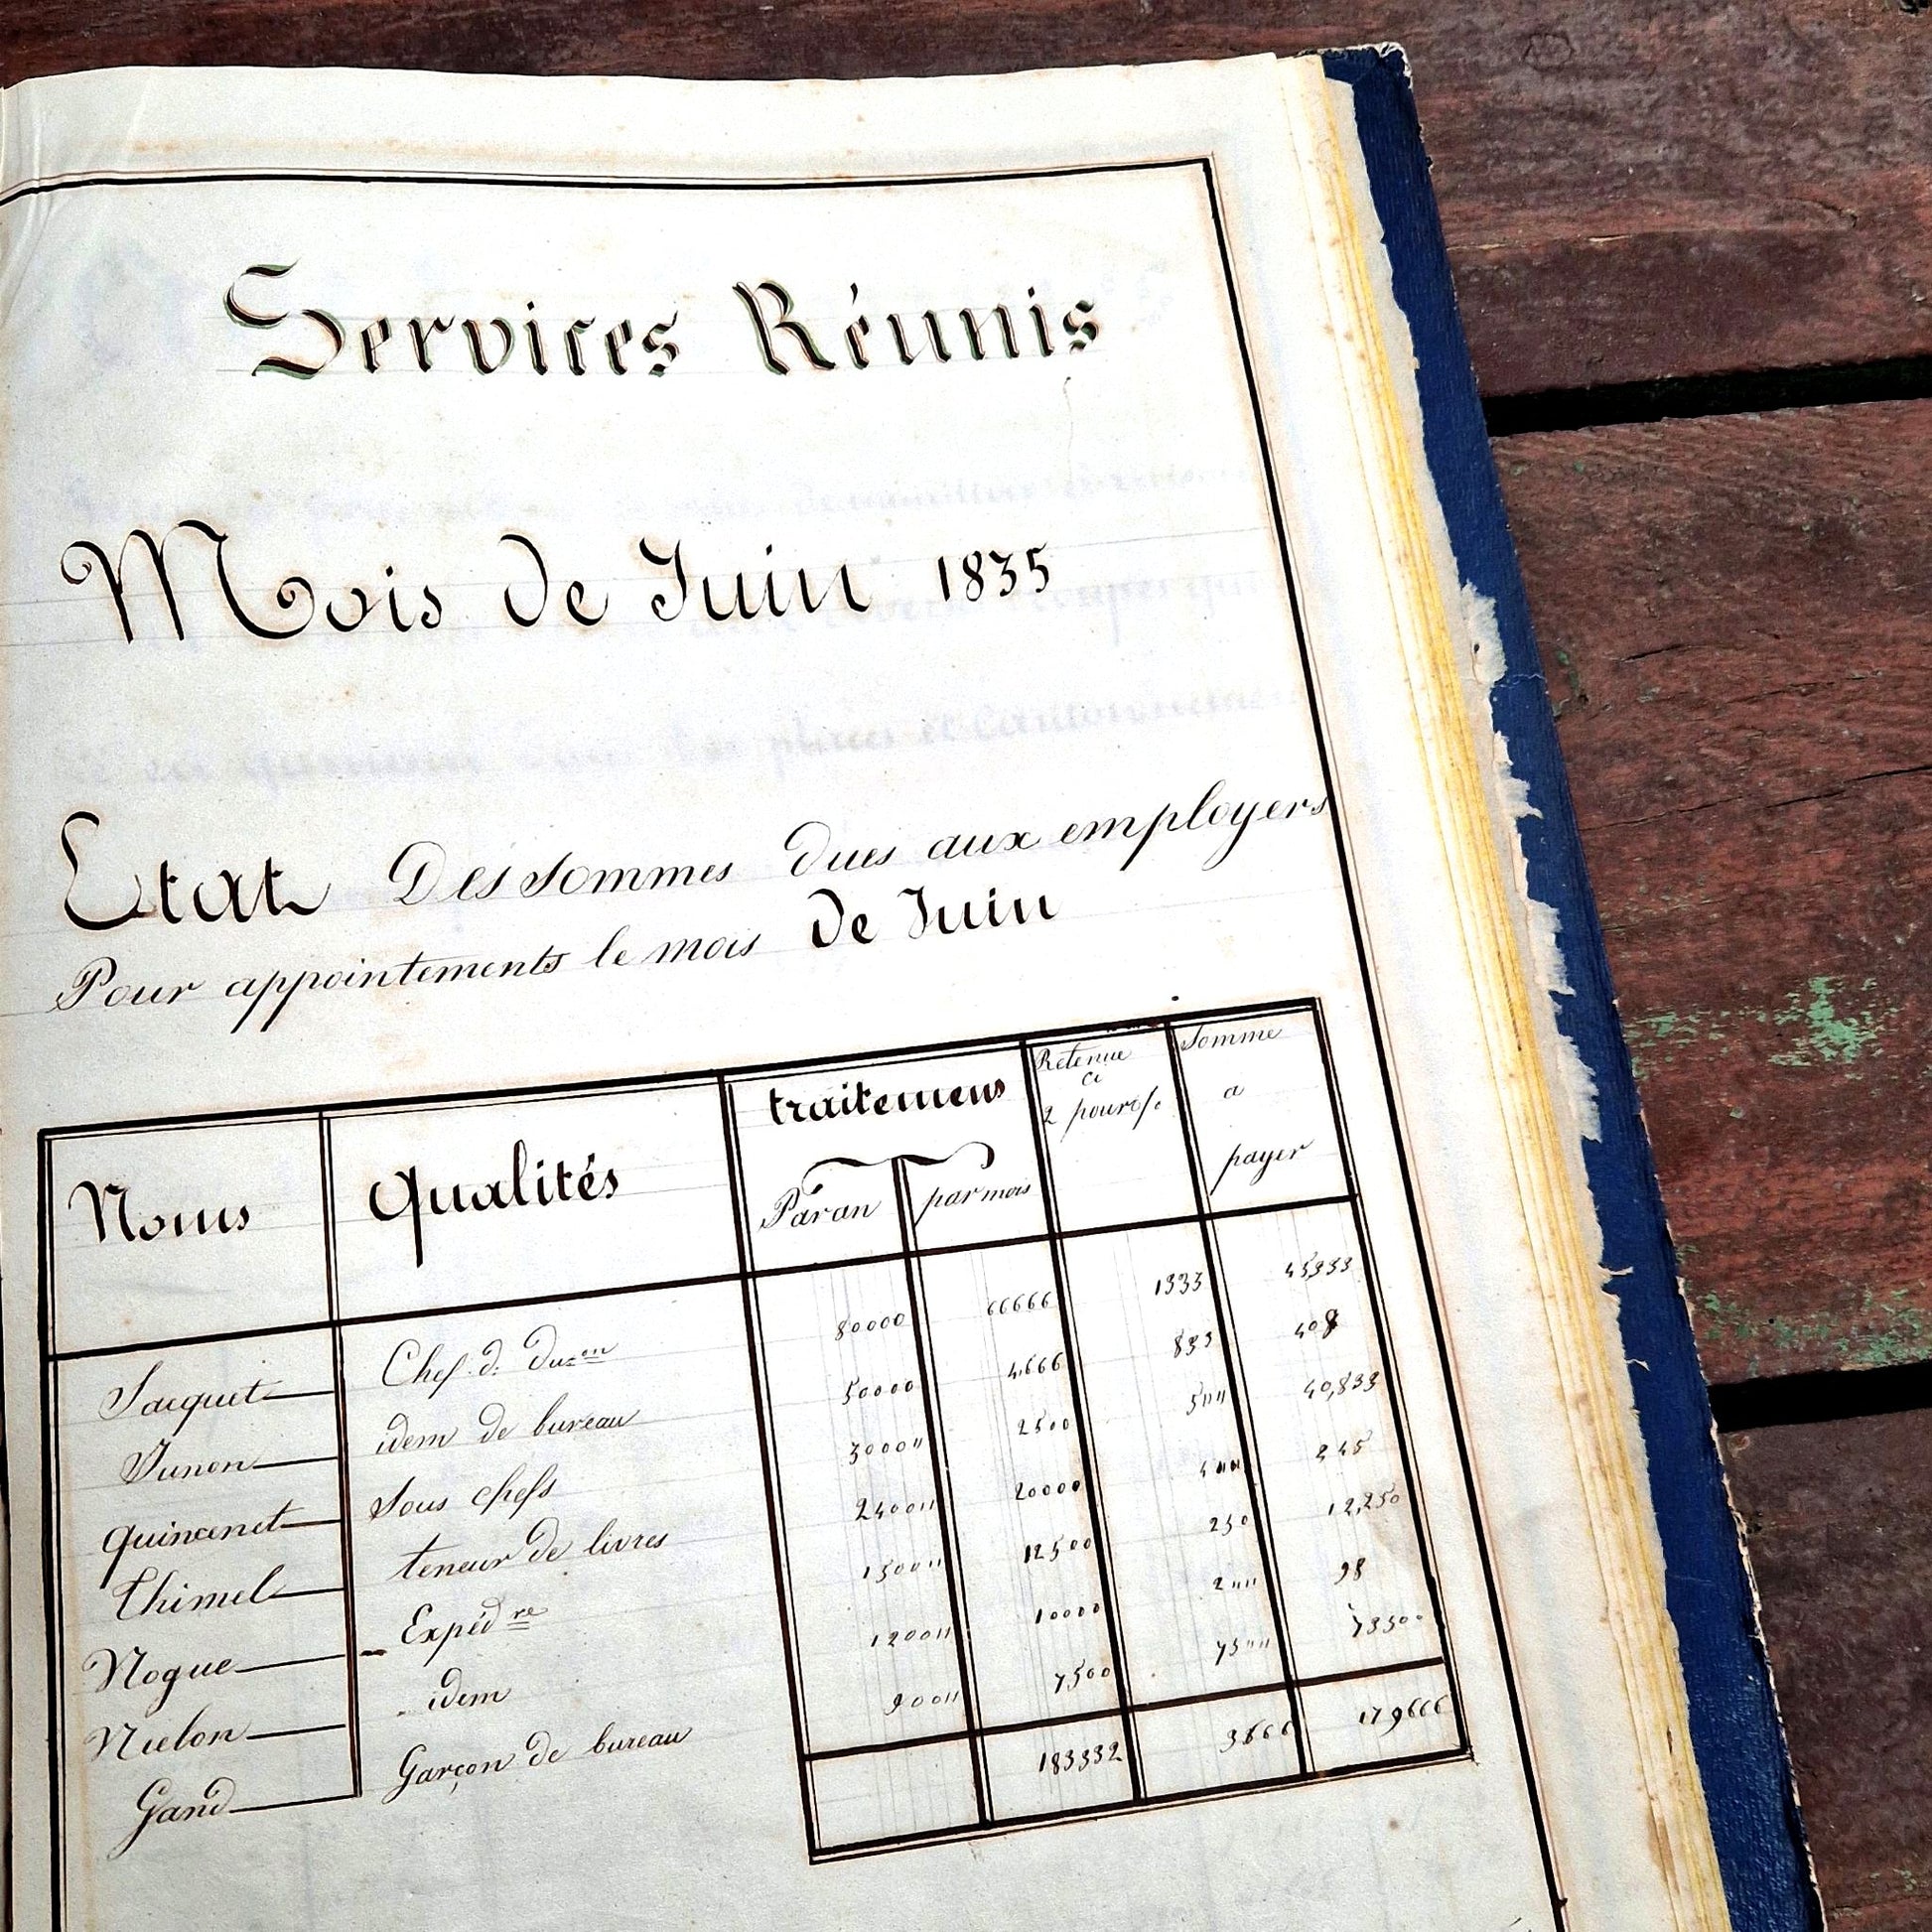 Services Réunis
Mois de Juin 1835
Etat Des sommes dues aux employers
Pour appointements le mois de Juin
Noms Qualités traitemens Retenue ci 2 pour % Somme a payer
Par an par mois
Jacquet Chef. d. don 80000 66666 1333 45333
Junon idem de bureau 50000 4.666 833 408
quincenet Sous chefs 3000" 2500 5"" 40,833
Thimel teneur de livres 2400" 20000 4"" 245
Nogue Expéd re 1500" 12500 250 12,250
Nielon idem 1200" 10000 2"" 98
Gand Garçon de bureau 900" 7500 75"" 7350
183332 3666 179666